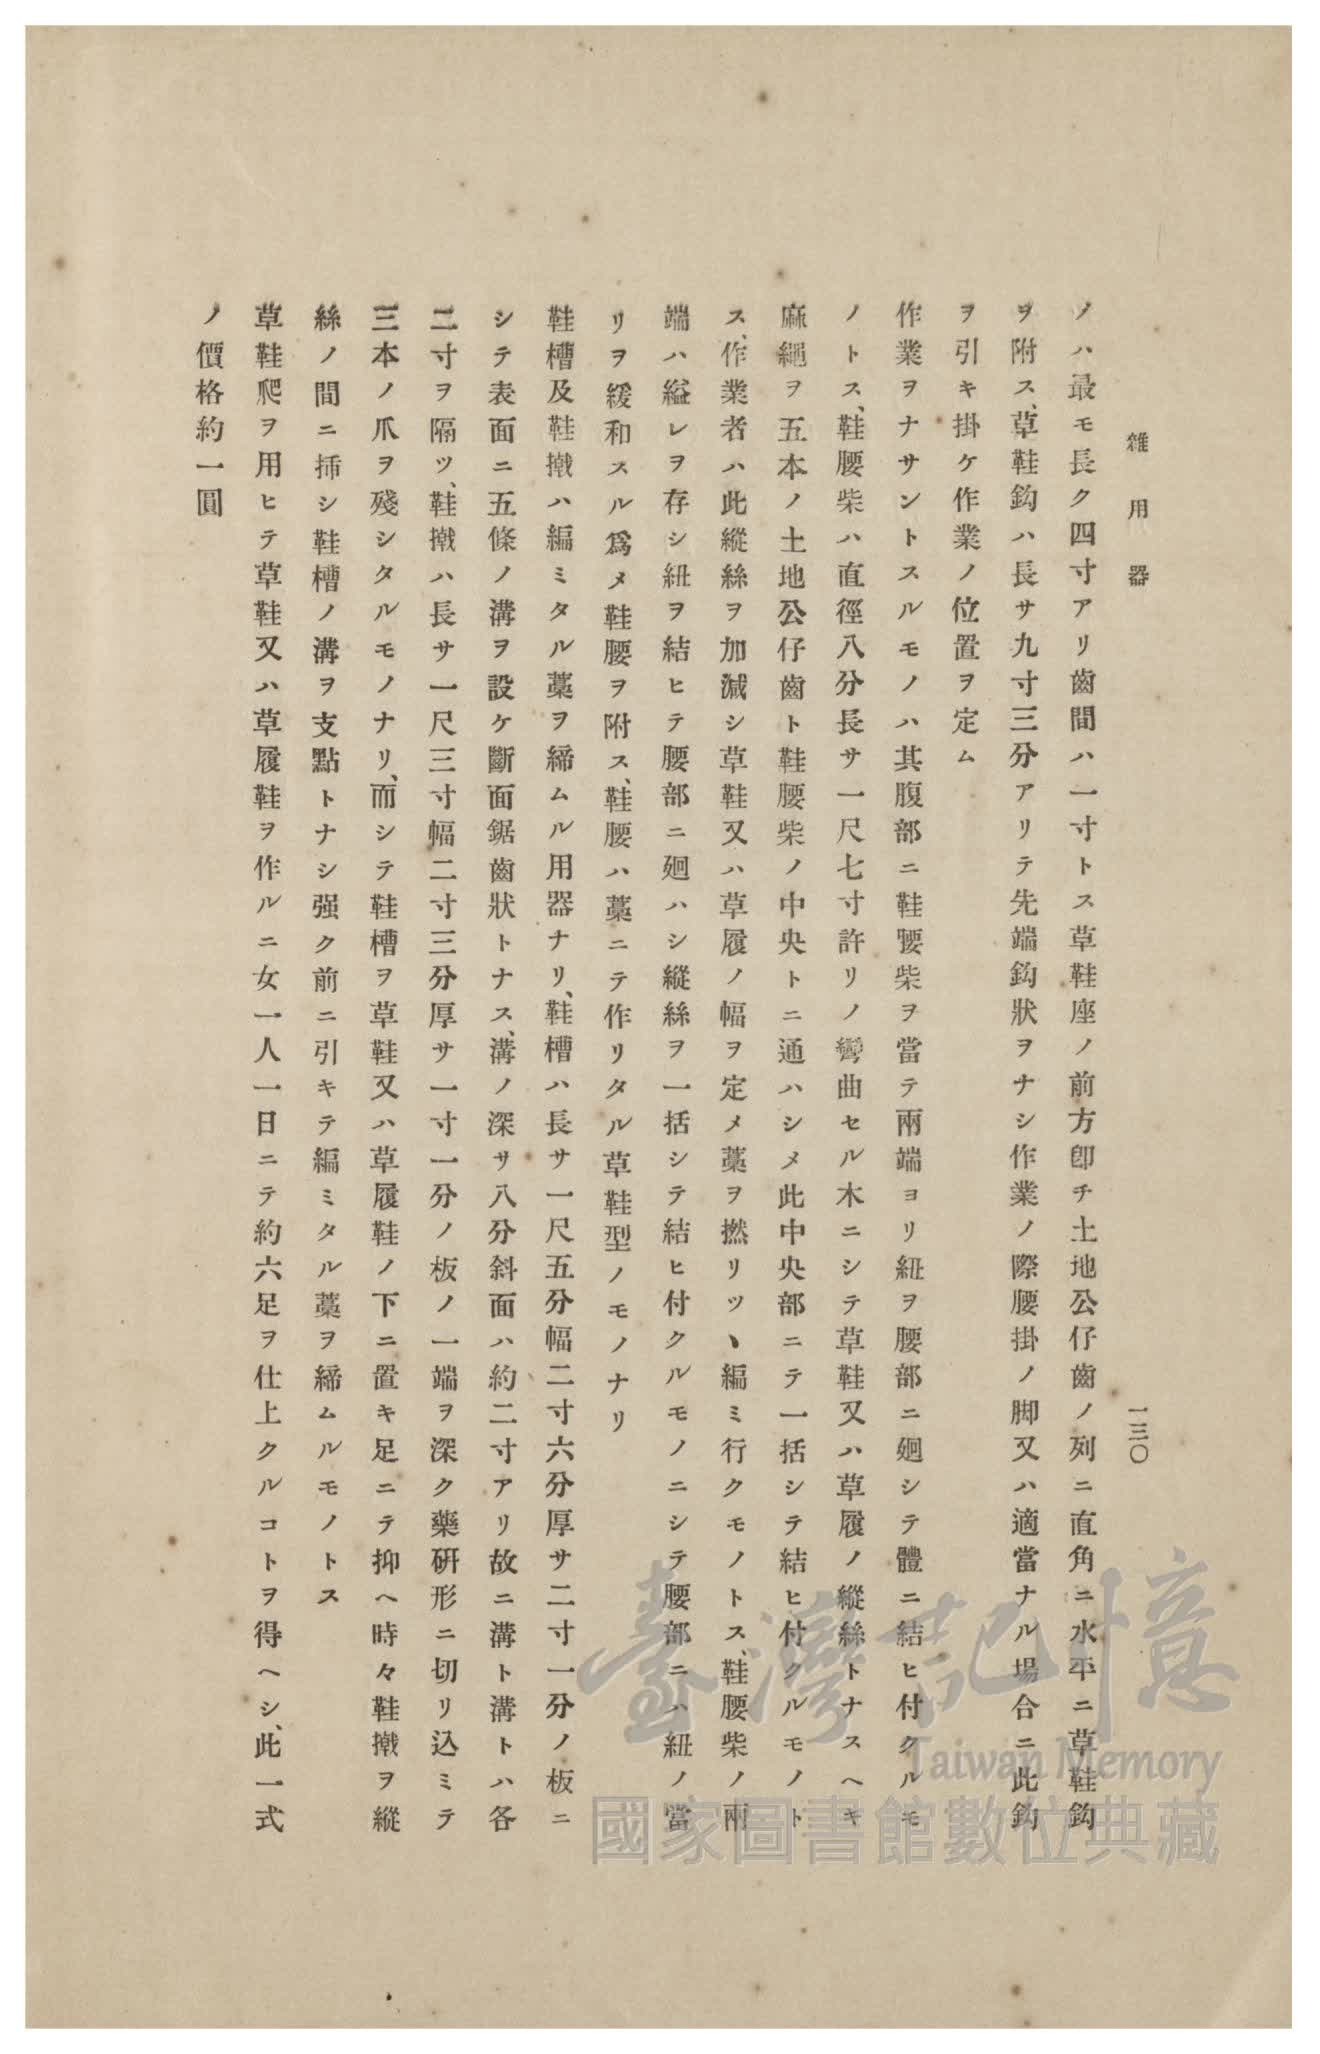 雜用器
一三〇
ノハ最モ長ク四寸アリ齒間ハ一寸トス草鞋座ノ前方卽チ土地公仔齒ノ列ニ直角ニ水平ニ草鞋鈎
ヲ附ス、草鞋鈎ハ長サ九寸三分アリテ先端鈎狀ヲナシ作業ノ際腰掛ノ脚又ハ適當ナル場合ニ此鈎
ヲ引キ掛ケ作業ノ位置ヲ定ム
作業ヲナサントスルモノハ其腹部ニ鞋腰柴ヲ當テ兩端ヨリ紐ヲ腰部ニ廻シテ體ニ結ヒ付クルモ
ノトス、鞋腰柴ハ直徑八分長サ一尺七寸許リノ彎曲セル木ニシテ草鞋又ハ草履ノ縱絲トナスヘキ
麻繩ヲ五本ノ土地公仔齒ト鞋腰柴ノ中央トニ通ハシメ此中央部ニテ一括シテ結ヒ付クルモノト
ス、作業者ハ此縱絲ヲ加減シ草鞋又ハ草履ノ幅ヲ定メ藁ヲ撚リツヽ編ミ行クモノトス、鞋腰柴ノ兩
端ハ縊レヲ存シ紐ヲ結ヒテ腰部ニ廻ハシ縱絲ヲ一括シテ結ヒ付クルモノニシテ腰部ニハ紐ノ當
リヲ緩和スル爲メ鞋腰ヲ附ス、鞋腰ハ藁ニテ作リタル草鞋型ノモノナリ
鞋槽及鞋撴ハ編ミタル藁ヲ締ムル用器ナリ、鞋槽ハ長サ一尺五分幅二寸六分厚サ二寸一分ノ板ニ
シテ表面ニ五條ノ溝ヲ設ケ斷面鋸齒狀トナス、溝ノ深サ八分斜面ハ約二寸アリ故ニ溝ト溝トハ各
二寸ヲ隔ツ、鞋撴ハ長サ一尺三寸幅二寸三分厚サ一寸一分ノ板ノ一端ヲ深ク藥硏形ニ切リ込ミテ
三本ノ爪ヲ殘シタルモノナリ、而シテ鞋槽ヲ草鞋又ハ草履鞋ノ下ニ置キ足ニテ抑ヘ時々鞋撴ヲ縱
絲ノ間ニ揷シ鞋槽ノ溝ヲ支點トナシ强ク前ニ引キテ編ミタル藁ヲ締ムルモノトス
草鞋爬ヲ用ヒテ草鞋又ハ草履鞋ヲ作ルニ女一人一日ニテ約六足ヲ仕上クルコトヲ得ヘシ、此一式
ノ價格約一圓
臺灣記憶
Taiwan Memory
國家圖書館數位典藏